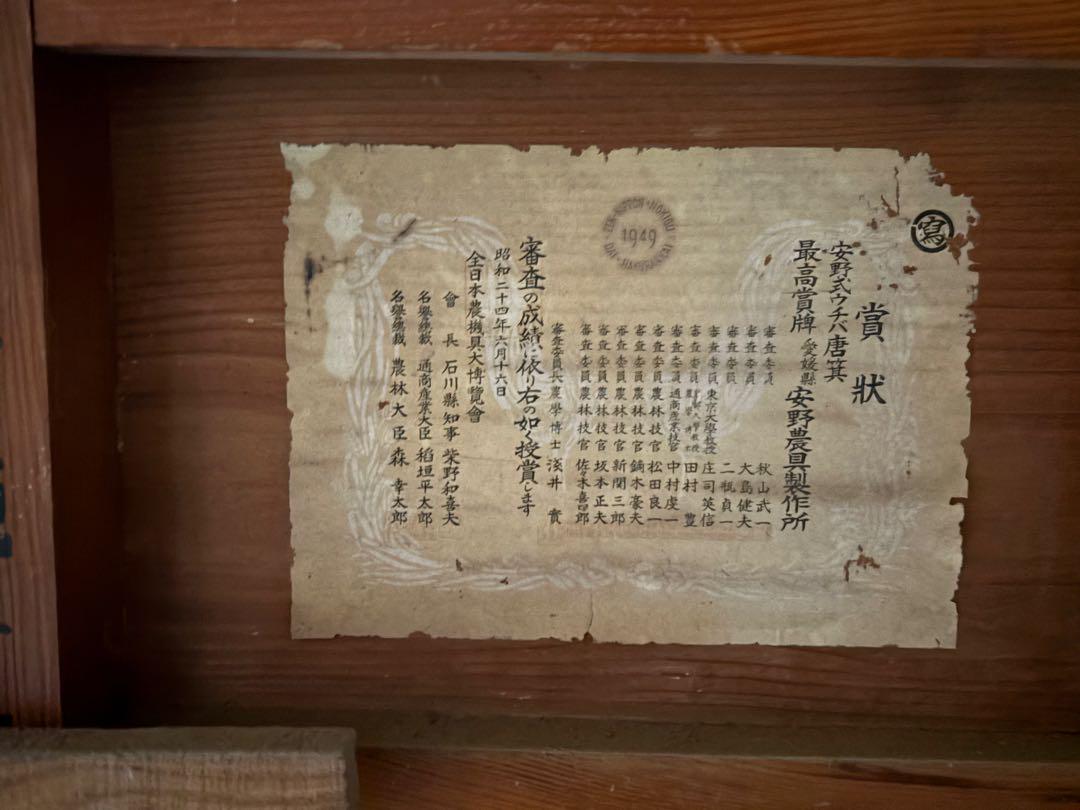 寫
賞狀
安野式ウチバ唐箕
最高賞牌 愛媛縣 安野農具製作所
審査委員 秋山武一
審査委員 大島健夫
審査委員 二瓶貞一
審査委員 東京大學教授 庄司英信
審査委員 田村豊
審査委員 通商産業技官 中村虔一
審査委員 農林技官 松田良一
審査委員 農林技官 鏑木豪夫
審査委員 農林技官 新関三郎
審査委員 農林技官 坂本正夫
審査委員 農林技官 佐々木喜四郎
審査委員長 農學博士 淺井實
審査の成績に依り右の如く授賞します
昭和二十四年六月十六日
全日本農機具大博覽會
會長 石川縣知事 柴野和喜夫
名譽總裁 通商産業大臣 稻垣平太郎
名譽總裁 農林大臣 森幸太郎
1949